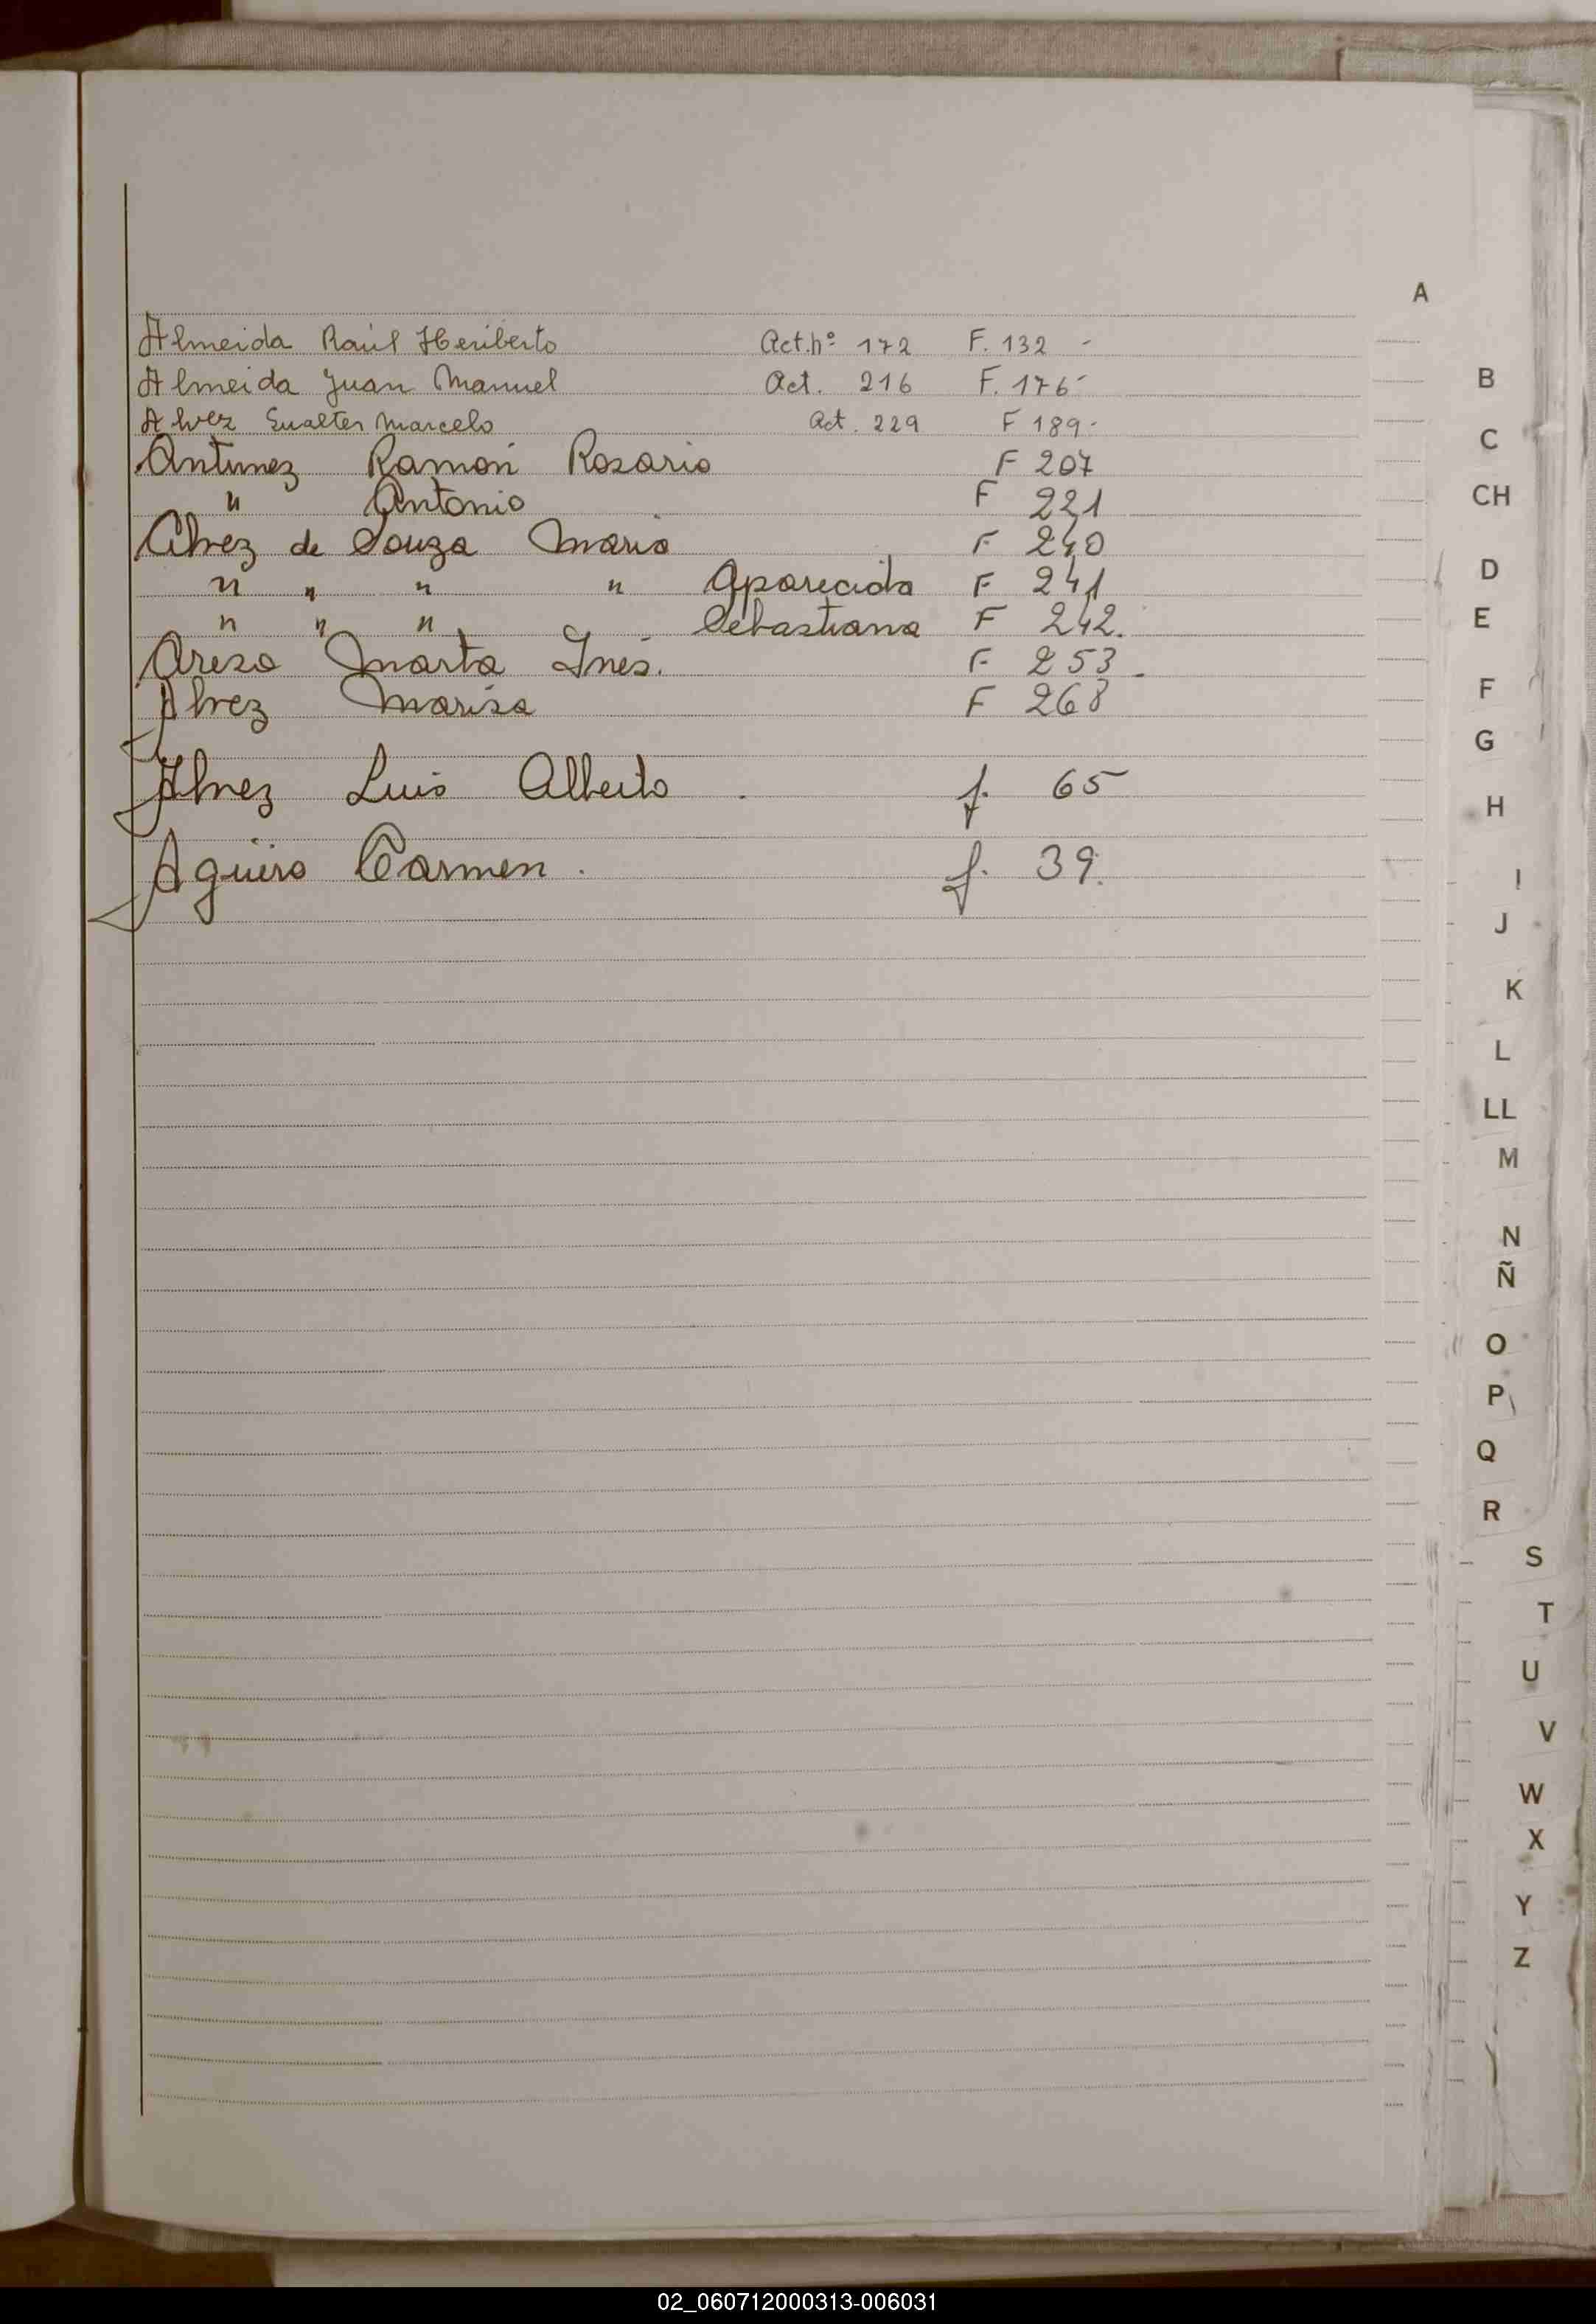 A
Almeida Raúl Heriberto Act.nº 172 F. 132 -
Almeida Juan Manuel Act. 216 F. 176-
Alvez Eualter Marcelo Act. 229 F 189-
Antunez Ramón Rosario F 207
" Antonio F 221
Alvez de Souza Maria F 240
" " " " Aparecida F 241
" " " Sebastiana F 242.
Areza Marta Inés. F 253.
Alvez Marisa F 268
Alvez Luis Alberto . f. 65
Agüero Carmen . f. 39.
B
C
CH
D
E
F
G
H
I
J
K
L
LL
M
N
Ñ
O
P
Q
R
S
T
U
V
W
X
Y
Z
02_060712000313-006031